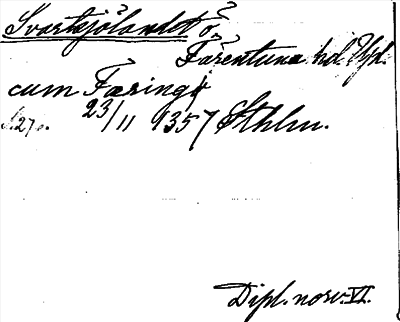 Svartsjölandet ö.
Färentuna hd. Upl.
cum Færing
s. 270. 23/11 1357 Sthlm.
Dipl. norv. VI.